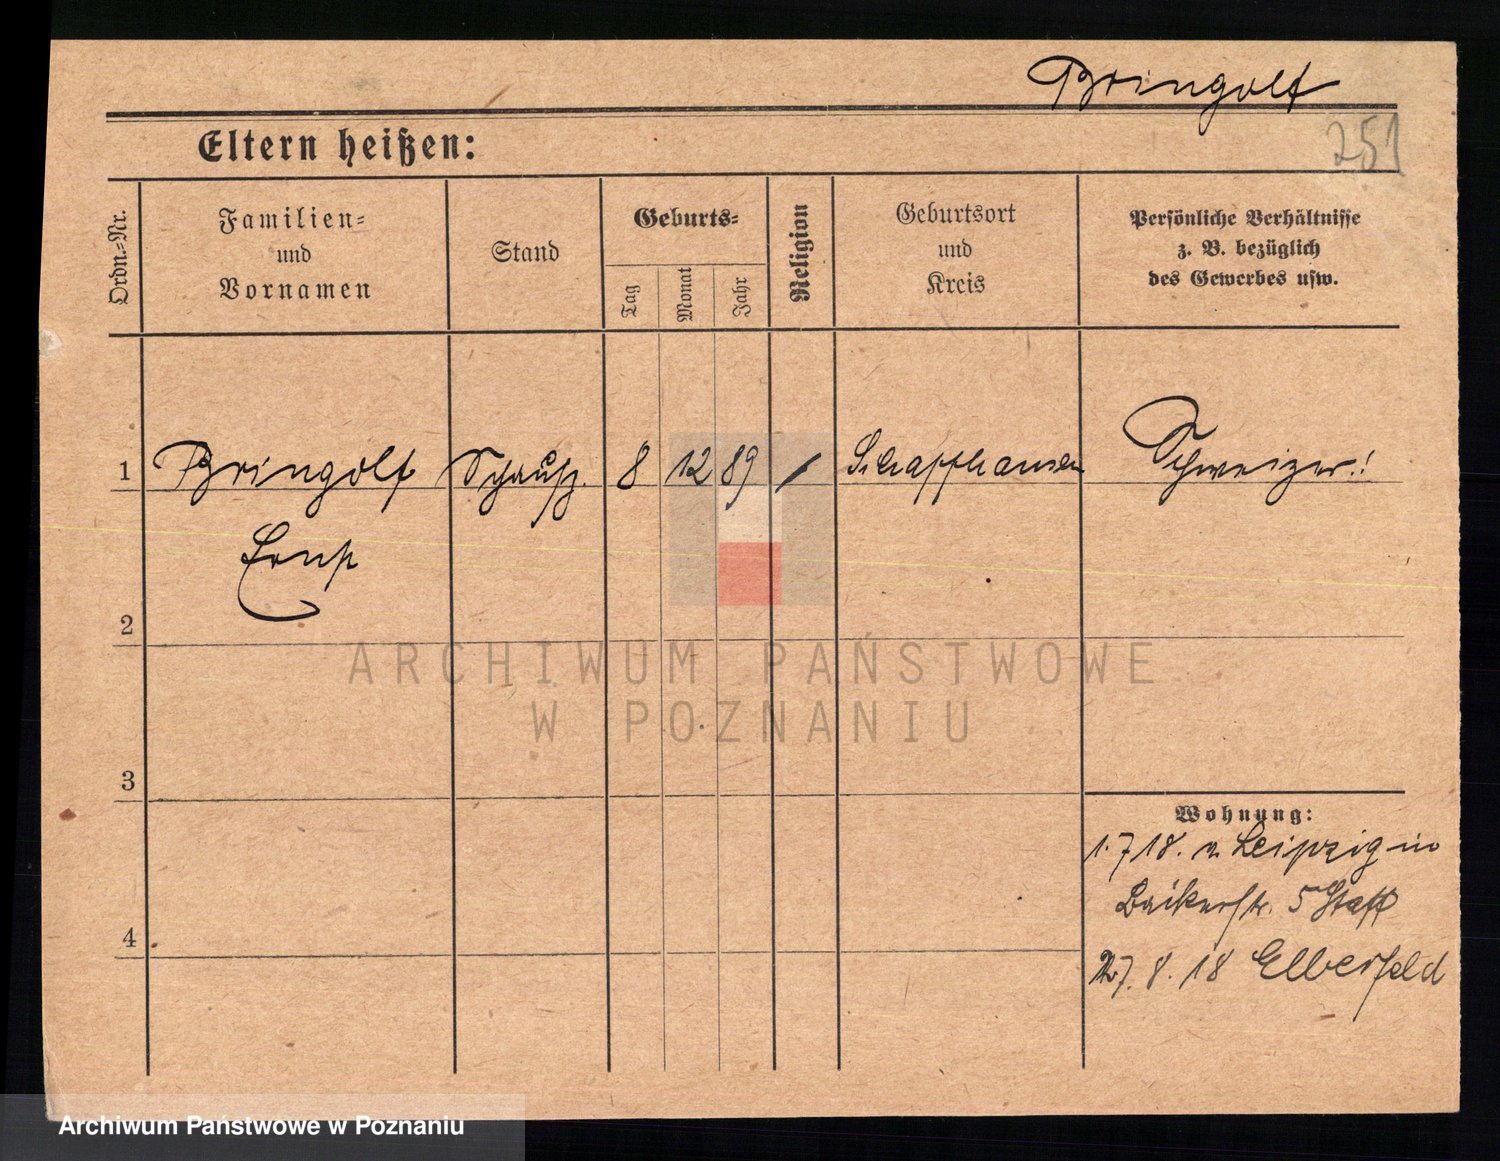 Bringolf
251
Eltern heißen:
Ordn.-Nr.
Familien-
und
Vornamen
Stand
Geburts-
Tag
Monat
Jahr
Religion
Geburtsort
und
Kreis
Persönliche Verhältnisse
z. B. bezüglich
des Gewerbes usw.
1 Bringolf Schausp. 8 12 89 / Schaffhausen Schweizer!
Ernst
2
3
4
Wohnung:
1.7 18. v. Leipzig in
5
27. 8. 18 Elberfeld
ARCHIWUM PAŃSTWOWE
W POZNANIU
Archiwum Państwowe w Poznaniu